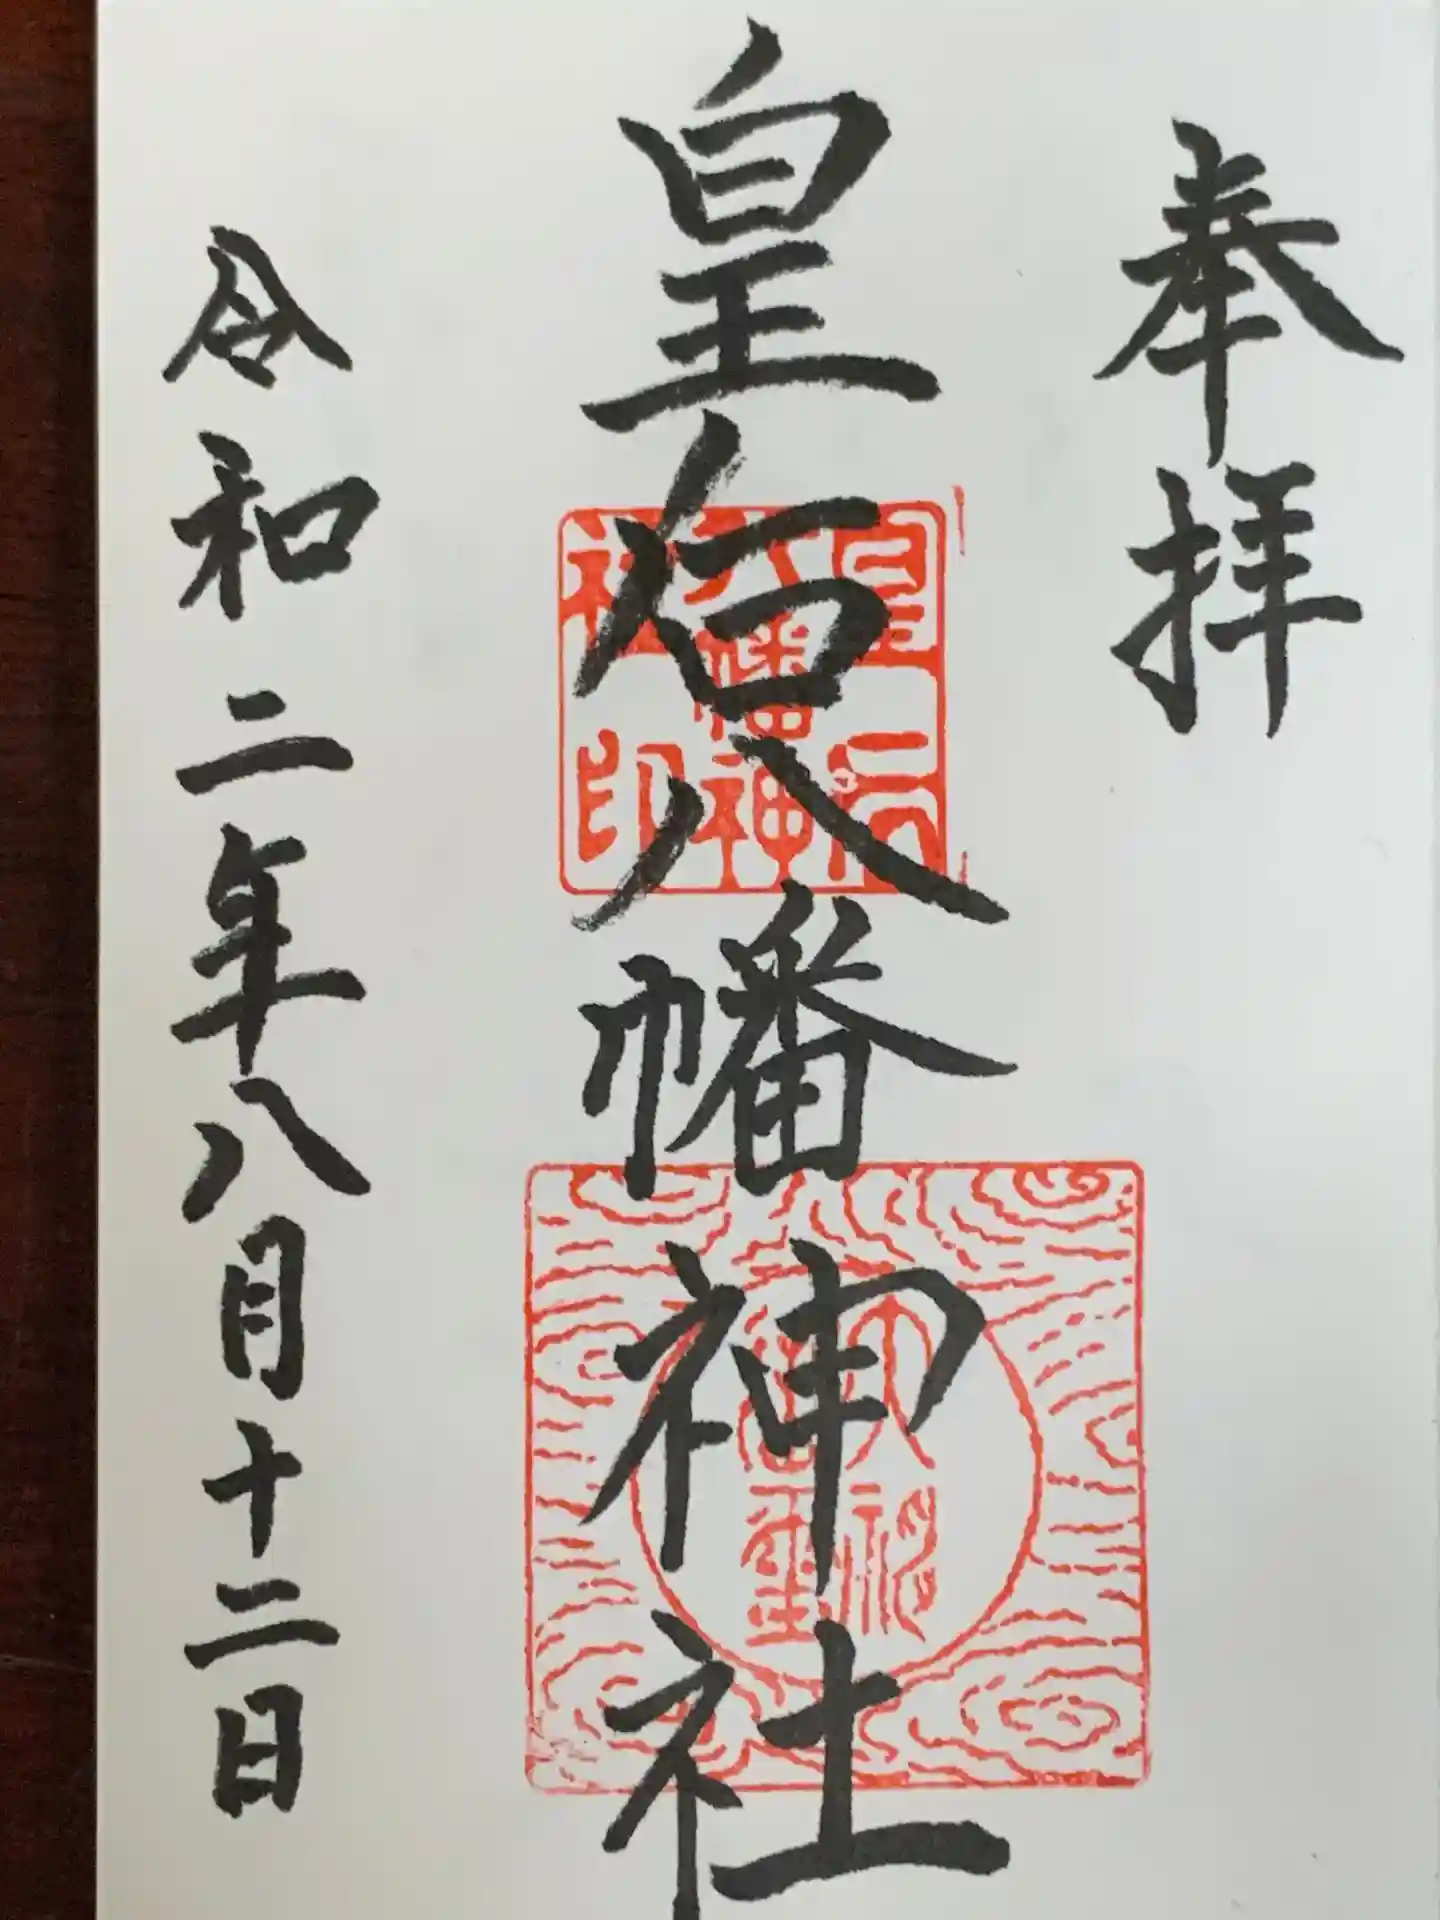 奉拝
皇后八幡神社
皇后八幡神社印
令和二年八月十二日